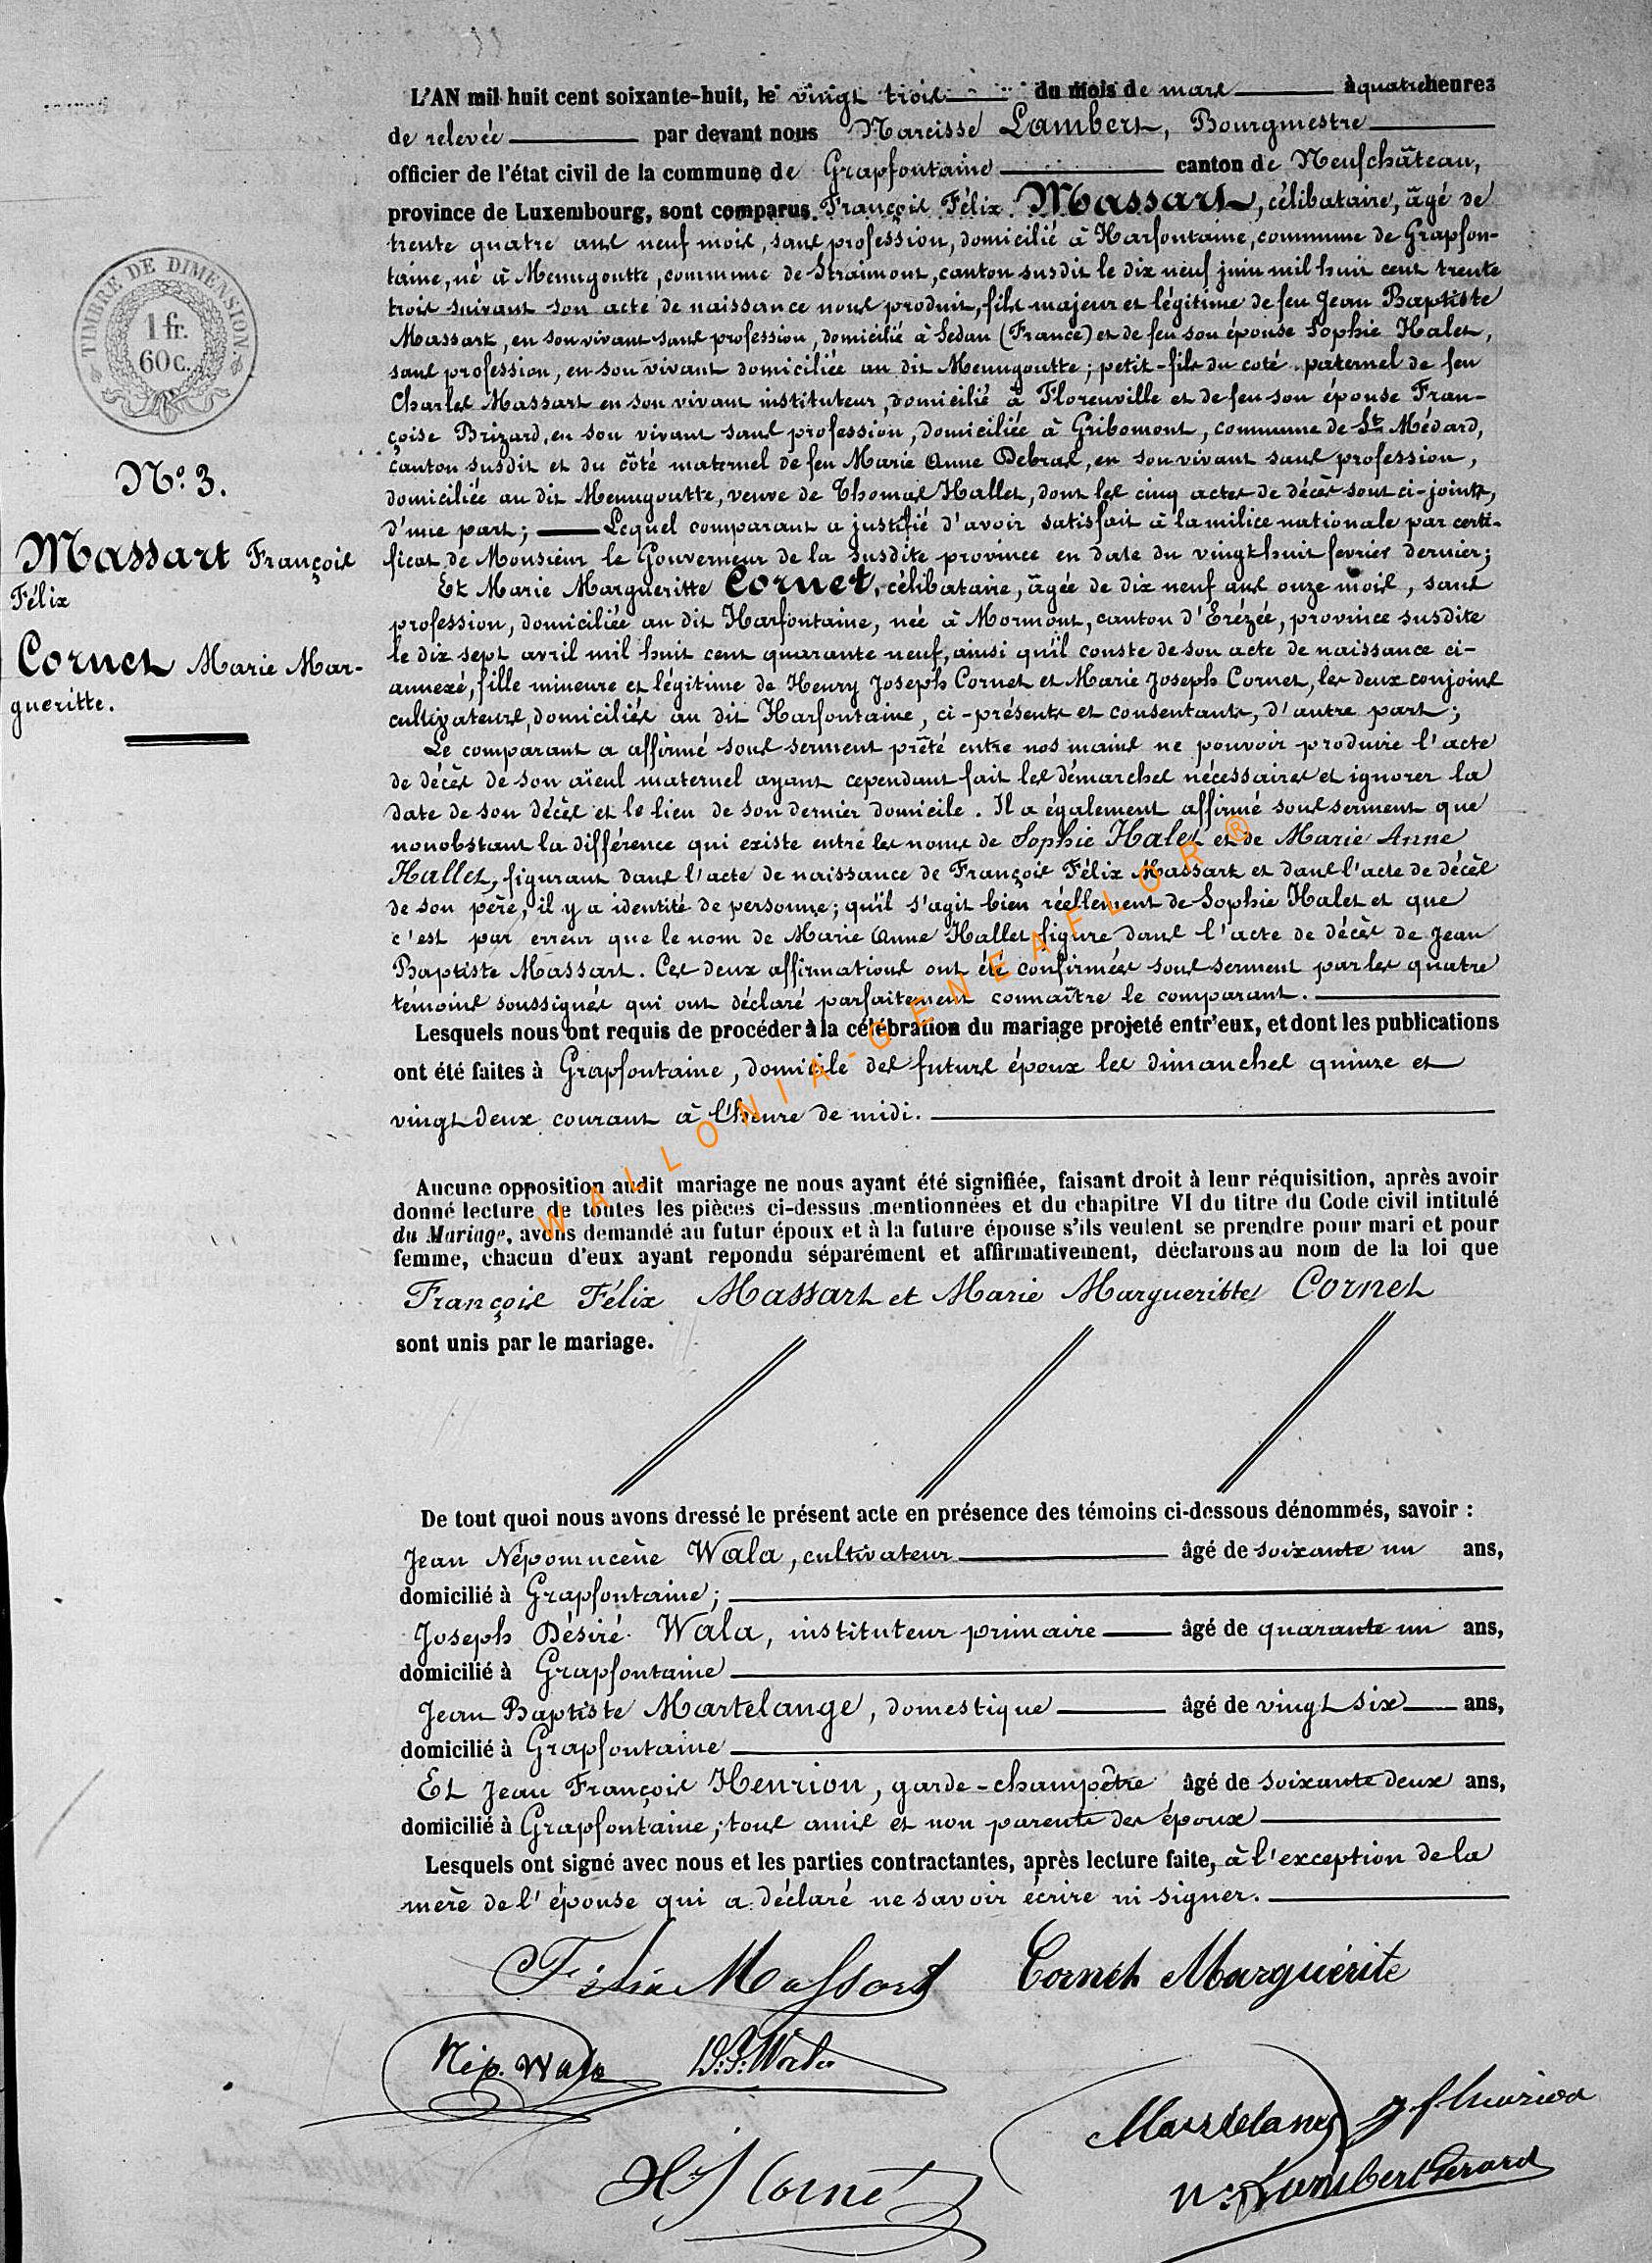 L'AN mil huit cent soixante-huit, le vingt trois du mois de mars à quatre heures
de relevée par devant nous Narcisse Lambert, Bourgmestre
officier de l'état civil de la commune de Grapfontaine canton de Neufchâteau,
province de Luxembourg, sont comparus François Félix Massart, célibataire, âgé de
trente quatre ans neuf mois, sans profession, domicilié à Harfontaine, commune de Grapfon-
taine, né à Menugoutte, commune de Straimont, canton susdit le dix neuf juin mil huit cent trente
trois suivant son acte de naissance nous produit, fils majeur et légitime de feu Jean Baptiste
Massart, en son vivant sans profession, domicilié à Sedan (France) et de feu son épouse Sophie Halet,
sans profession, en son vivant domiciliée au dit Menugoutte; petit-fils du coté paternel de feu
Charles Massart en son vivant instituteur, domicilié à Florenville et de feu son épouse Fran-
çoise Brizard, en son vivant sans profession, domiciliée à Gribomont, commune de St Médard,
canton susdit et du côté maternel de feu Marie Anne Debras, en son vivant sans profession,
domiciliée au dit Menugoutte, veuve de Thomas Hallet, dont les cinq actes de décès sont ci-joints,
d'une part; Lequel comparant a justifié d'avoir satisfait à la milice nationale par certi-
ficat de Monsieur le Gouverneur de la susdite province en date du vingt huit fevrier dernier;
Et Marie Margueritte Cornet, célibataire, âgée de dix neuf ans onze mois, sans
profession, domiciliée au dit Harfontaine, née à Mormont, canton d'Erézée, province susdite
le dix sept avril mil huit cent quarante neuf, ainsi qu'il conste de son acte de naissance ci-
annexé, fille mineure et légitime de Henry Joseph Cornet et Marie Joseph Cornet, les deux conjoins
cultivateurs, domiciliés au dit Harfontaine, ci-présents et consentants, d'autre part;
Le comparant a affirmé sous serment prêté entre nos mains ne pouvoir produire l'acte
de décès de son aïeul maternel ayant cependant fait les démarches nécessaires et ignorer la
date de son décès et le lieu de son dernier domicile. Il a également affirmé sous serment que
nonobstant la différence qui existe entre les noms de Sophie Halet et de Marie Anne
Hallet, figurant dans l'acte de naissance de François Félix Massart et dans l'acte de décès
de son père, il y a identité de personne; qu'il s'agit bien réellement de Sophie Halet et que
c'est par erreur que le nom de Marie Anne Hallet figure dans l'acte de décès de Jean
Baptiste Massart. Ces deux affirmations ont été confirmées sous serment par les quatre
témoins soussignés qui ont déclaré parfaitement connaître le comparant.
Lesquels nous ont requis de procéder à la célébration du mariage projeté entr'eux, et dont les publications
ont été faites à Grapfontaine, domicile des futurs époux les dimanches quinze et
vingt deux courant à l'heure de midi.
Aucune opposition audit mariage ne nous ayant été signifiée, faisant droit à leur réquisition, après avoir
donné lecture de toutes les pièces ci-dessus mentionnées et du chapitre VI du titre du Code civil intitulé
du Mariage, avons demandé au futur époux et à la future épouse s'ils veulent se prendre pour mari et pour
femme, chacun d'eux ayant repondu séparément et affirmativement, déclarons au nom de la loi que
François Félix Massart et Marie Margueritte Cornet
sont unis par le mariage.
De tout quoi nous avons dressé le présent acte en présence des témoins ci-dessous dénommés, savoir :
Jean Népomucène Wala, cultivateur âgé de soixante un ans,
domicilié à Grapfontaine;
Joseph Désiré Wala, instituteur primaire âgé de quarante un ans,
domicilié à Grapfontaine
Jean Baptiste Martelange, domestique âgé de vingt six ans,
domicilié à Grapfontaine
Et Jean François Henrion, garde-champêtre âgé de soixante deux ans,
domicilié à Grapfontaine; tous amis et non parents des époux
Lesquels ont signé avec nous et les parties contractantes, après lecture faite, à l'exception de la
mère de l'épouse qui a déclaré ne savoir écrire ni signer.
Félix Massart Cornet Marguérite
Nép. Wala D.J. Wala
Martelange J f henrion
H J Corne
N: Lambert Gerard
TIMBRE DE DIMENSION.
1 fr.
60 c.
No. 3.
Massart François
Félix
Cornet Marie Mar-
gueritte.
WALLONIA-GENEAFLOR®